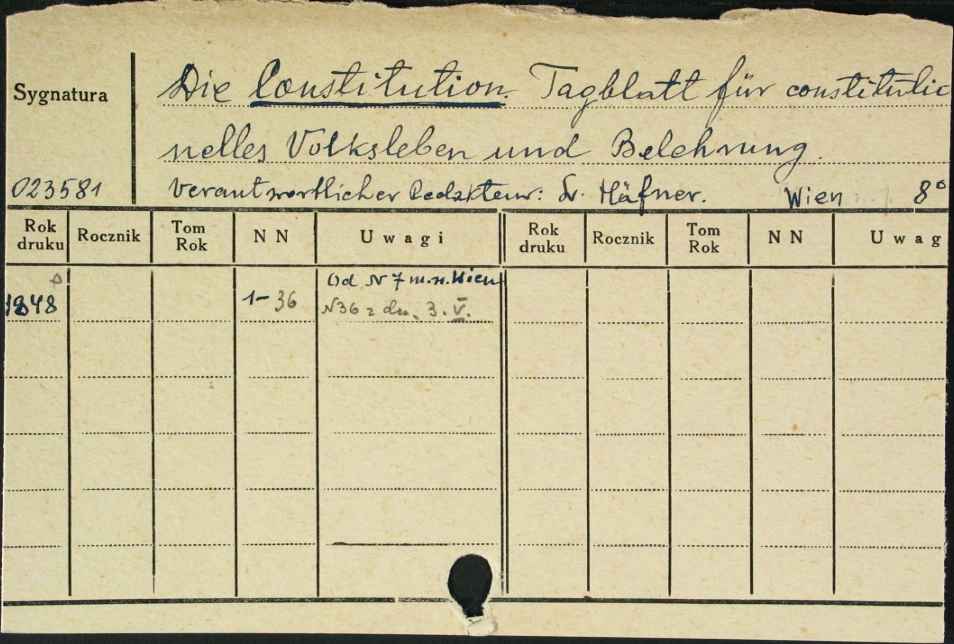 Sygnatura
Die Constitution. Tagblatt für constitutio
nelles Volksleben und Belehrung.
023581 Verantwortlicher Redakteur: Dr. Häfner. Wien 8°
Rok druku Rocznik Tom Rok NN Uwagi Rok druku Rocznik Tom Rok NN Uwag
Od N 7 m.n. Wien
1848 1-36 N36 z dn. 3.V.